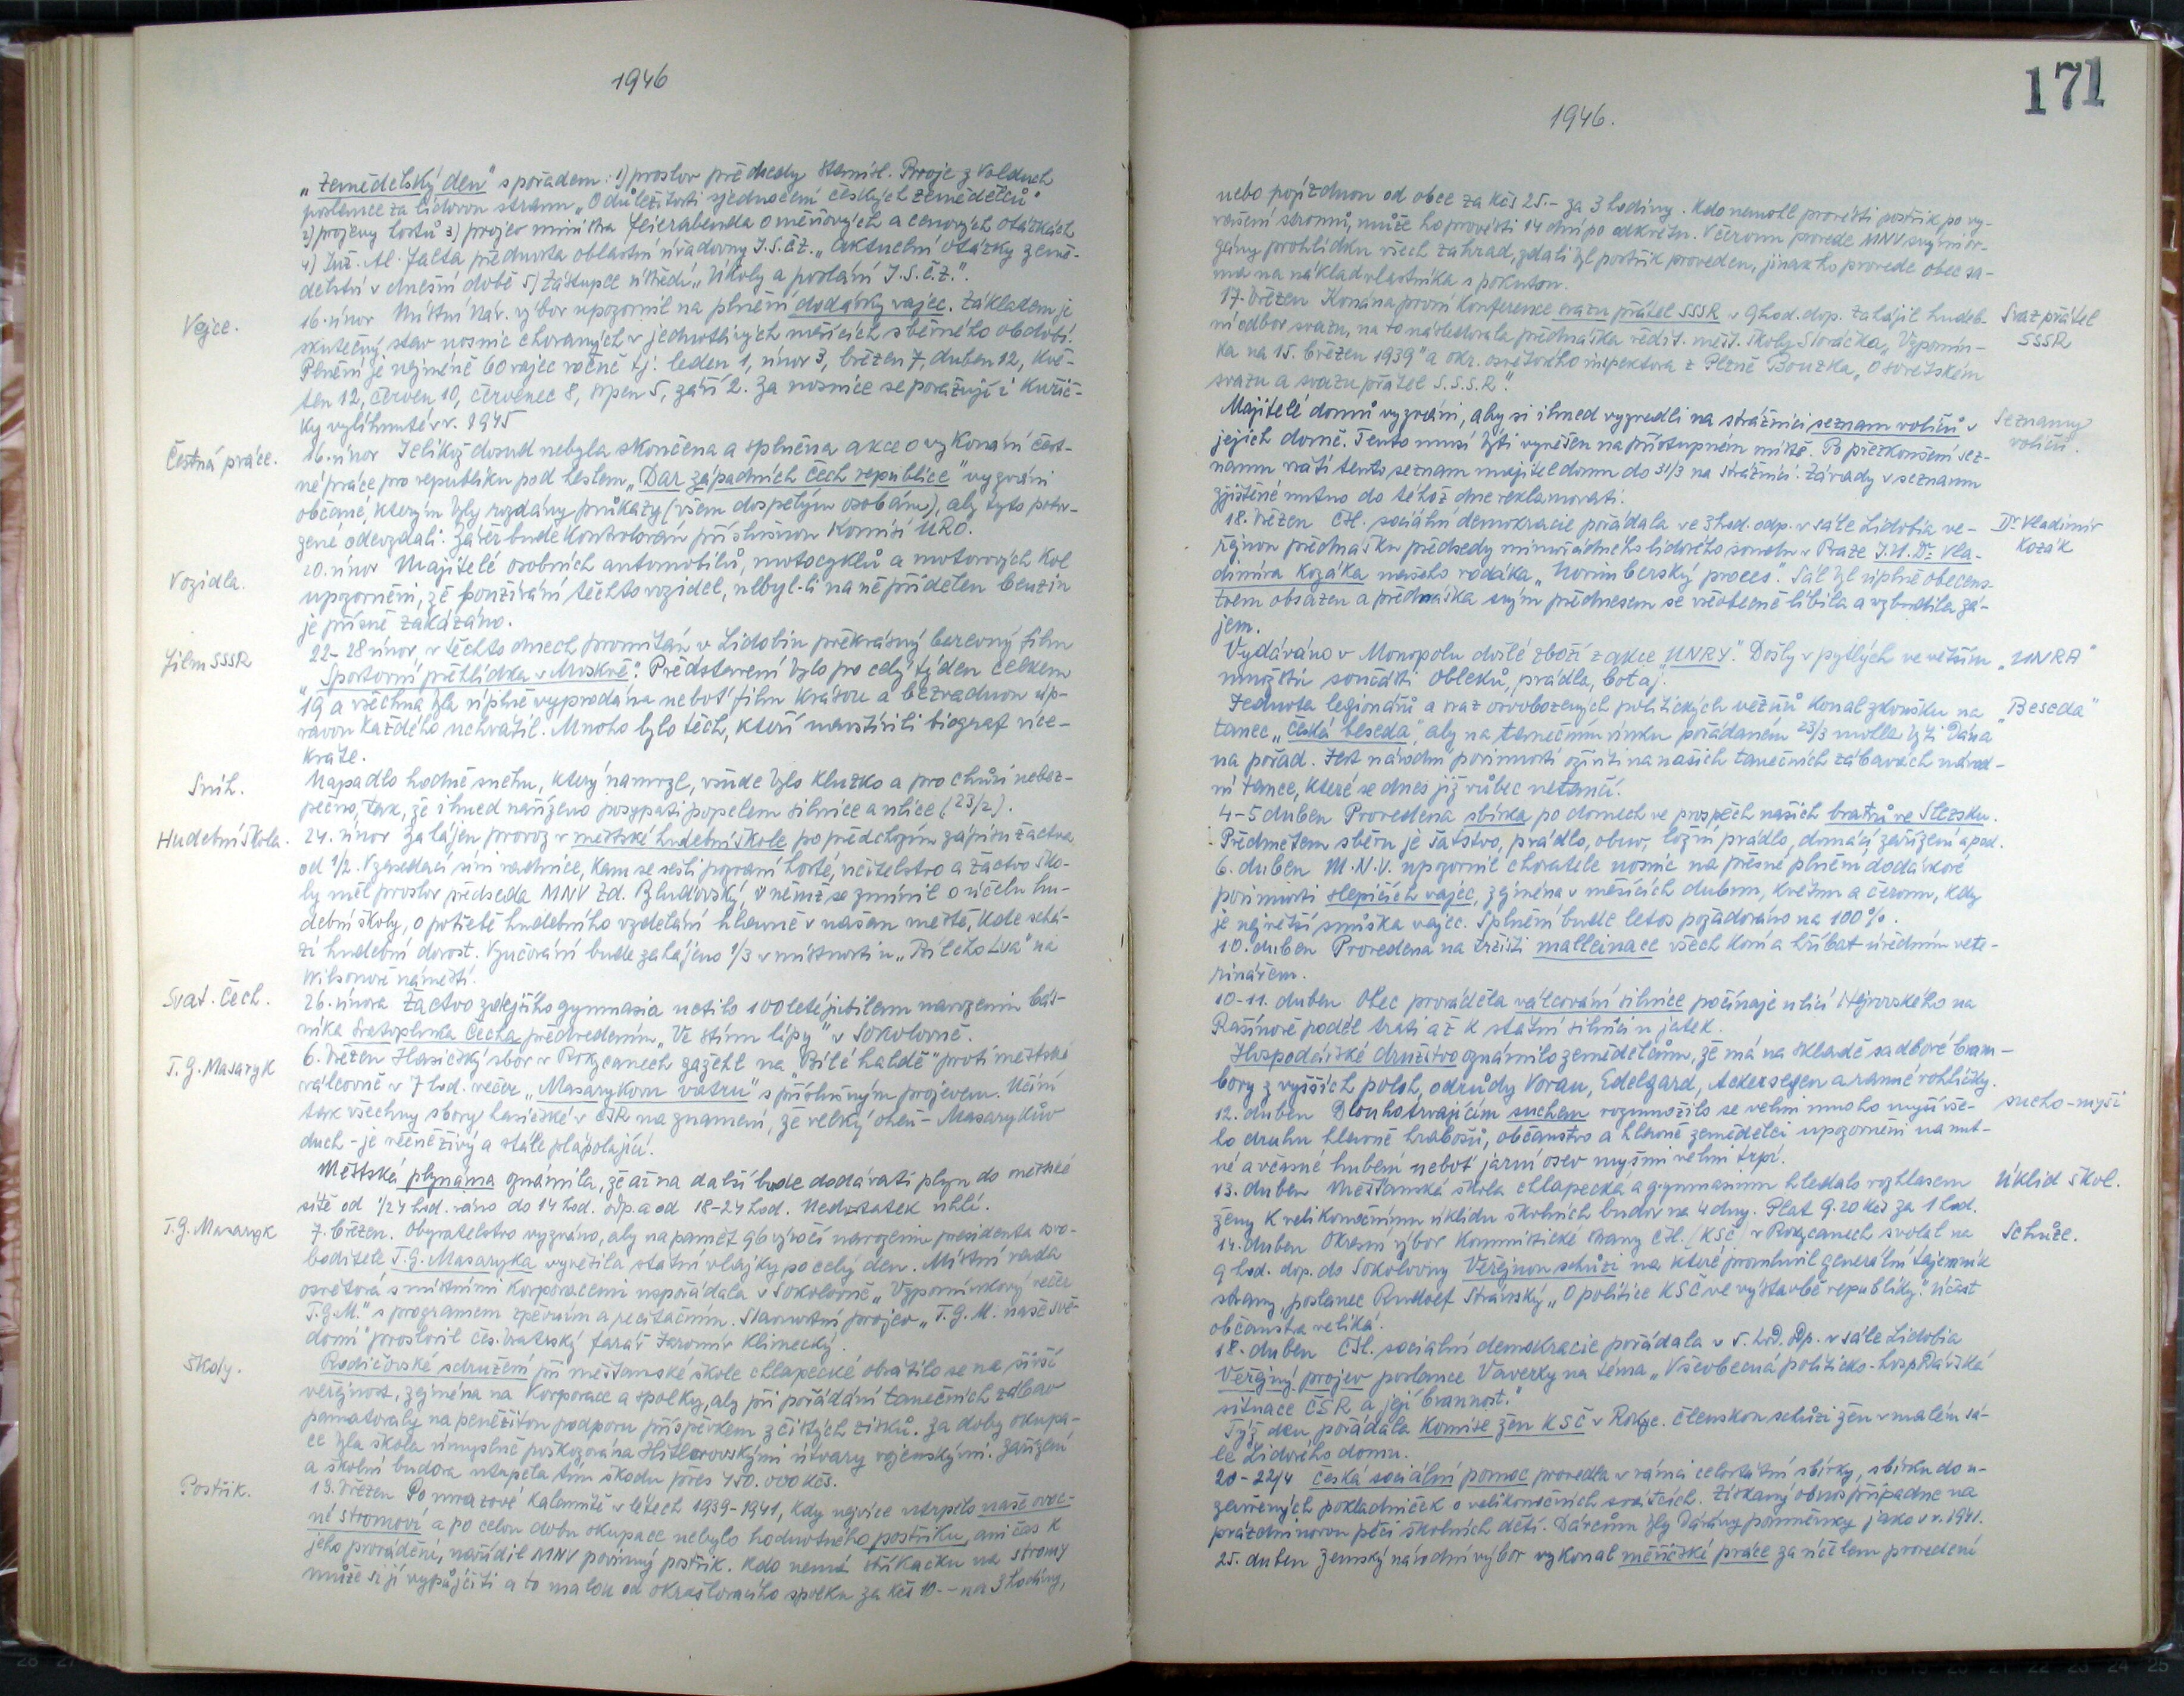 1946
„Zemědělský den" s pořadem: 1) proslov předsedy Stanisl. Broje z Volduch
poslance za lidovou stranu „O důležitosti sjednocení českých zemědělců"
2) projevy hostů 3) projev ministra Feierabenda o měnových a cenových otázkách
4) Inž. Al. Jalta přednosta oblastní úřadovny J.S.č.z. „Aktuelní otázky země-
dělství v dnešní době 5) Zástupce ústředí „Úkoly a poslání J.S.č.z.".
Vejce.
16. únor Místní nár. výbor upozornil na plnění dodávky vajec. Základem je
skutečný stav nosnic chovaných v jednotlivých měsících sběrného období.
Plnění je nejméně 60 vajec ročně tj: leden 1, únor 3, březen 7, duben 12, kvě-
ten 12, červen 10, červenec 8, srpen 5, září 2. Za nosnice se považují i kuřič-
ky vylíhnuté v r. 1945
Čestná práce.
16. únor Jelikož dosud nebyla skončena a splněna akce o vykonání čest-
né práce pro republiku pod heslem „Dar západních Čech republice" vyzváni
občané, kterým byly rozdány průkazy (všem dospělým osobám), aby tyto potvr-
zené odevzdali. Závěr bude kontrolován příslušnou komisí ÚRO.
Vozidla.
20. únor Majitelé osobních automobilů, motocyklů a motorových kol
upozorněni, že používání těchto vozidel, nebyl-li na ně přidělen benzin
je přísně zakázáno.
Film SSSR
22-28 únor v těchto dnech promítán v Lidobiu překrásný barevný film
„Sportovní přehlídka v Moskvě". Představení bylo po celý týden celkem
19 a všechna byla úplně vyprodána neboť film krásou a bezvadnou úp-
ravou každého uchvátil. Mnoho bylo těch, kteří navštívili biograf více-
kráte.
Sníh.
Napadlo hodně sněhu, který namrzl, všude bylo kluzko a pro chůzi nebez-
pečno, tak, že ihned nařízeno posypati popelem silnice a ulice (23/2).
Hudební škola.
24. únor Zahájen provoz v městské hudební škole po předchozím zápisu žactva
od 1/2. V zasedací síni radnice, kam se sešli pozvaní hosté, učitelstvo a žactvo ško-
ly měl proslov předseda MNV Zd. Bludovský, v němž se zmínil o účelu hu-
dební školy, o potřebě hudebního vzdělání hlavně v našem městě, kde schá-
zí hudební dorost. Vyučování bude zahájeno 1/3 v místnosti u „Bílého Lva" na
Wilsonově náměstí.
Svat. Čech.
26. února Žactvo zdejšího gymnasia uctilo 100leté jubileum narozenin bás-
níka Svatopluka Čecha předvedením „Ve stínu lípy" v Sokolovně.
T. G. Masaryk
6. březen Hasičský sbor v Rokycanech zažehl na „Bílé haldě" proti městské
válcovně v 7 hod. večer „Masarykovu vatru" s příslušným projevem. Učiní
tak všechny sbory hasičské v ČSR na znamení, že velký oheň - Masarykův
duch - je věčně živý a stále plápolající.
Městská plynárna oznámila, že až na další bude dodávati plyn do městské
sítě od 1/24 hod. ráno do 14 hod. odp. a od 18-24 hod. Nedostatek uhlí.
T.G. Masaryk
7. březen. Obyvatelstvo vyzváno, aby na paměť 96 výročí narozenin presidenta osvo-
boditele T.G. Masaryka vyvěsila státní vlajky po celý den. Místní rada
osvětová s místními korporacemi uspořádala v Sokolovně „Vzpomínkový večer
T.G.M." s programem zpěvním a recitačním. Slavnostní projev „T.G.M. naše svě-
domí" proslovil čes. bratrský farář Jaromír Klimecký.
Školy.
Rodičovské sdružení při měšťanské škole chlapecké obrátilo se na širší
veřejnost, zejména na korporace a spolky, aby při pořádání tanečních zábav
pamatovaly na peněžitou podporu příspěvkem z čistých zisků. Za doby okupa-
ce byla škola úmyslně poškozována Hitlerovskými útvary vojenskými. Zařízení
a školní budova utrpěla tím škodu přes 450.000 Kčs.
Postřik.
13. březen Po mrazové kalamitě v letech 1939-1941, kdy nejvíce utrpělo naše ovoc-
né stromoví a po celou dobu okupace nebylo hodnotného postřiku, ani čas k
jeho provádění, nařídil MNV povinný postřik. Kdo nemá stříkačku na stromy
může si ji vypůjčiti a to malou od okrašlovacího spolku za Kčs 10.- na 3 hodiny,
171
1946.
nebo pojízdnou od obce za Kčs 25.- za 3 hodiny. Kdo nemohl prováěsti postřik po vy-
rašení stromů, může ho provésti 14 dní po odkvětu. V červnu provede MNV svými or-
gány prohlídku všech zahrad, zdali byl postřik proveden, jinak ho provede obec sa-
ma na náklad vlastníka s pokutou.
17. březen Konána první konference svazu přátel SSSR v 9 hod. dop. Zahájil hudeb-
ní odbor svazu, na to následovala přednáška ředit. měst. školy Slováčka, „Vzpomín-
ka na 15. březen 1939" a okr. osvětového inspektora z Plzně Bouzka, „O sovětském
svazu a svazu přátel S.S.S.R.".
Svaz přátel
SSSR
Majitelé domů vyzváni, aby si ihned vyzvedli na strážnici seznam voličů v
jejich domě. Tento musí býti vyvěšen na přístupném místě. Po přezkoušení sez-
namu vrátí tento seznam majitel domu do 31/3 na strážnici. Závady v seznamu
zjištěné nutno do téhož dne reklamovati.
Seznamy
voličů.
18. březen Čsl. sociální demokracie pořádala ve 3 hod. odp. v sále Lidobia ve-
řejnou přednášku předsedy mimořádného lidového soudu v Praze J.U.Dr. Vla-
dimíra Kozáka našeho rodáka „Norimberský proces". Sál byl úplně obecens-
tvem obsazen a přednáška svým přednesem se všeobecně líbila a vzbudila zá-
jem.
Dr. Vladimír
Kozák
Vydáváno v Monopolu došlé zboží z akce „UNRY". Došly v pytlích ve větším
množství součásti obleků, prádla, bot aj.
„UNRA"
Jednota legionářů a svaz osvobozených politických vězňů konal zkoušku na
tanec „Česká beseda", aby na tanečním vínku pořádaném 23/3 mohla býti dána
na pořad. Jest národní povinností oživiti na našich tanečních zábavách národ-
ní tance, které se dnes již vůbec netančí.
„Beseda"
4-5 duben Provedena sbírka po domech ve prospěch našich bratrů ve Slezsku.
Předmětem sběru je šatstvo, prádlo, obuv, ložní prádlo, domácí zařízení a pod.
6. duben M.N.V. upozornil chovatele nosnic na přesné plnění dodávkové
povinnosti slepičích vajec, zejména v měsících dubnu, květnu a červnu, kdy
je největší snůška vajec. Splnění bude letos požadováno na 100%.
10. duben Provedena na tržišti malleinace všech koní a hříbat úředním vete-
rinářem.
10-11. duben Obec prováděla válcování silnice počínaje ulicí Nejrovského na
Rašínově podél trati až k státní silnici u jatek.
Hospodářské družstvo oznámilo zemědělcům, že má na skladě sadbové bram-
bory z vyšších poloh, odrůdy Voran, Edelgard, Ackersegen a ranné rohlíčky.
12. duben Dlouhotrvajícím suchem rozmnožilo se velmi mnoho myší vše-
ho druhu hlavně hrabošů, občanstvo a hlavně zemědělci upozorněni na nut-
né a včasné hubení neboť jarní osev myšmi velmi trpí.
sucho-myši
13. duben Měšťanská škola chlapecká a gymnasium hledalo rozhlasem
ženy k velikonočnímu úklidu školních budov na 4 dny. Plat 9.20 Kčs za 1 hod.
Úklid škol.
14. duben Okresní výbor Komunistické strany Čsl. (KSČ) v Rokycanech svolal na
9 hod. dop. do Sokolovny Veřejnou schůzi na které promluvil generální tajemník
strany, poslanec Rudolf Slánský „O politice KSČ ve výstavbě republiky." Účast
občanstva veliká.
Schůze.
18. duben Čsl. sociální demokracie pořádala v 5. hod. odp. v sále Lidobia
Veřejný projev poslance Vaverky na téma „Všeobecná politicko-hospodářská
situace ČSR a její brannost."
Týž den pořádala Komise žen KSČ v Rokyc. členskou schůzi žen v malém sá-
le Lidového domu.
20-22/4 Česká sociální pomoc provedla v rámci celostátní sbírky, sbírku do u-
zavřených pokladniček o velikonočních svátcích. Získaný obnos připadne na
prázdninovou péči školních dětí. Dárcům byly dávány pomněnky jako v r. 1941.
25. duben Zemský národní výbor vykonal měřičské práce za účelem provedení